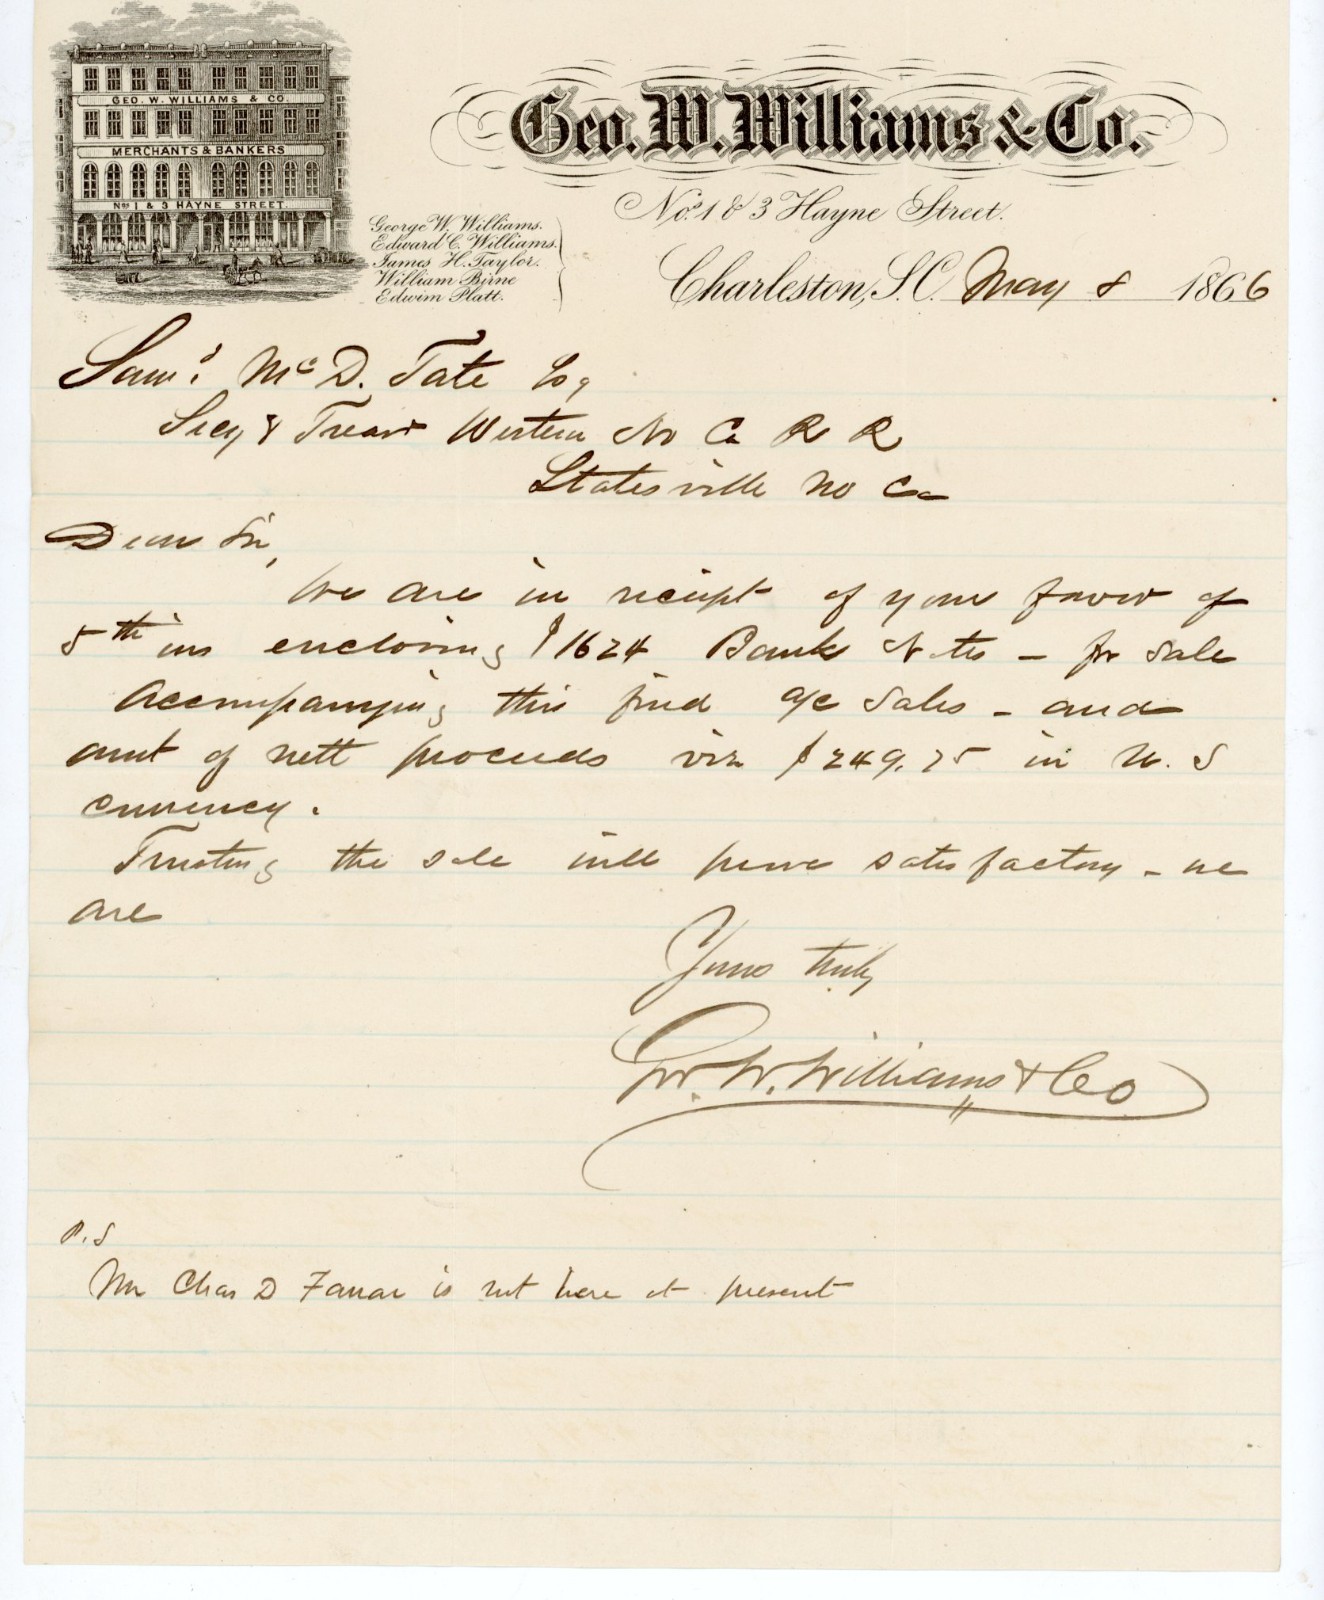 GEO. W. WILLIAMS & CO.
MERCHANTS & BANKERS
Nos 1 & 3 HAYNE STREET.
Geo. W. Williams & Co.
Nos. 1 & 3 Hayne Street.
George W. Williams.
Edward C. Williams.
James H. Taylor.
William Birne
Edwim Platt.
Charleston, S.C. May 8 1866
Saml. McD. Tate Esq
Secy & Treasr Western No Ca R R
Statesville No Ca
Dear Sir,
We are in receipt of your favor of
5th ins enclosing $1624 Bank Notes – for sale
Accompanying this find a/c Sales – and
amt of nett proceeds viz $249.75 in U.S
currency.
Trusting the sale will prove satisfactory – we
are
Yours truly
Geo. W. Williams & Co
P.S
Mr Chas D Farrar is not here at present